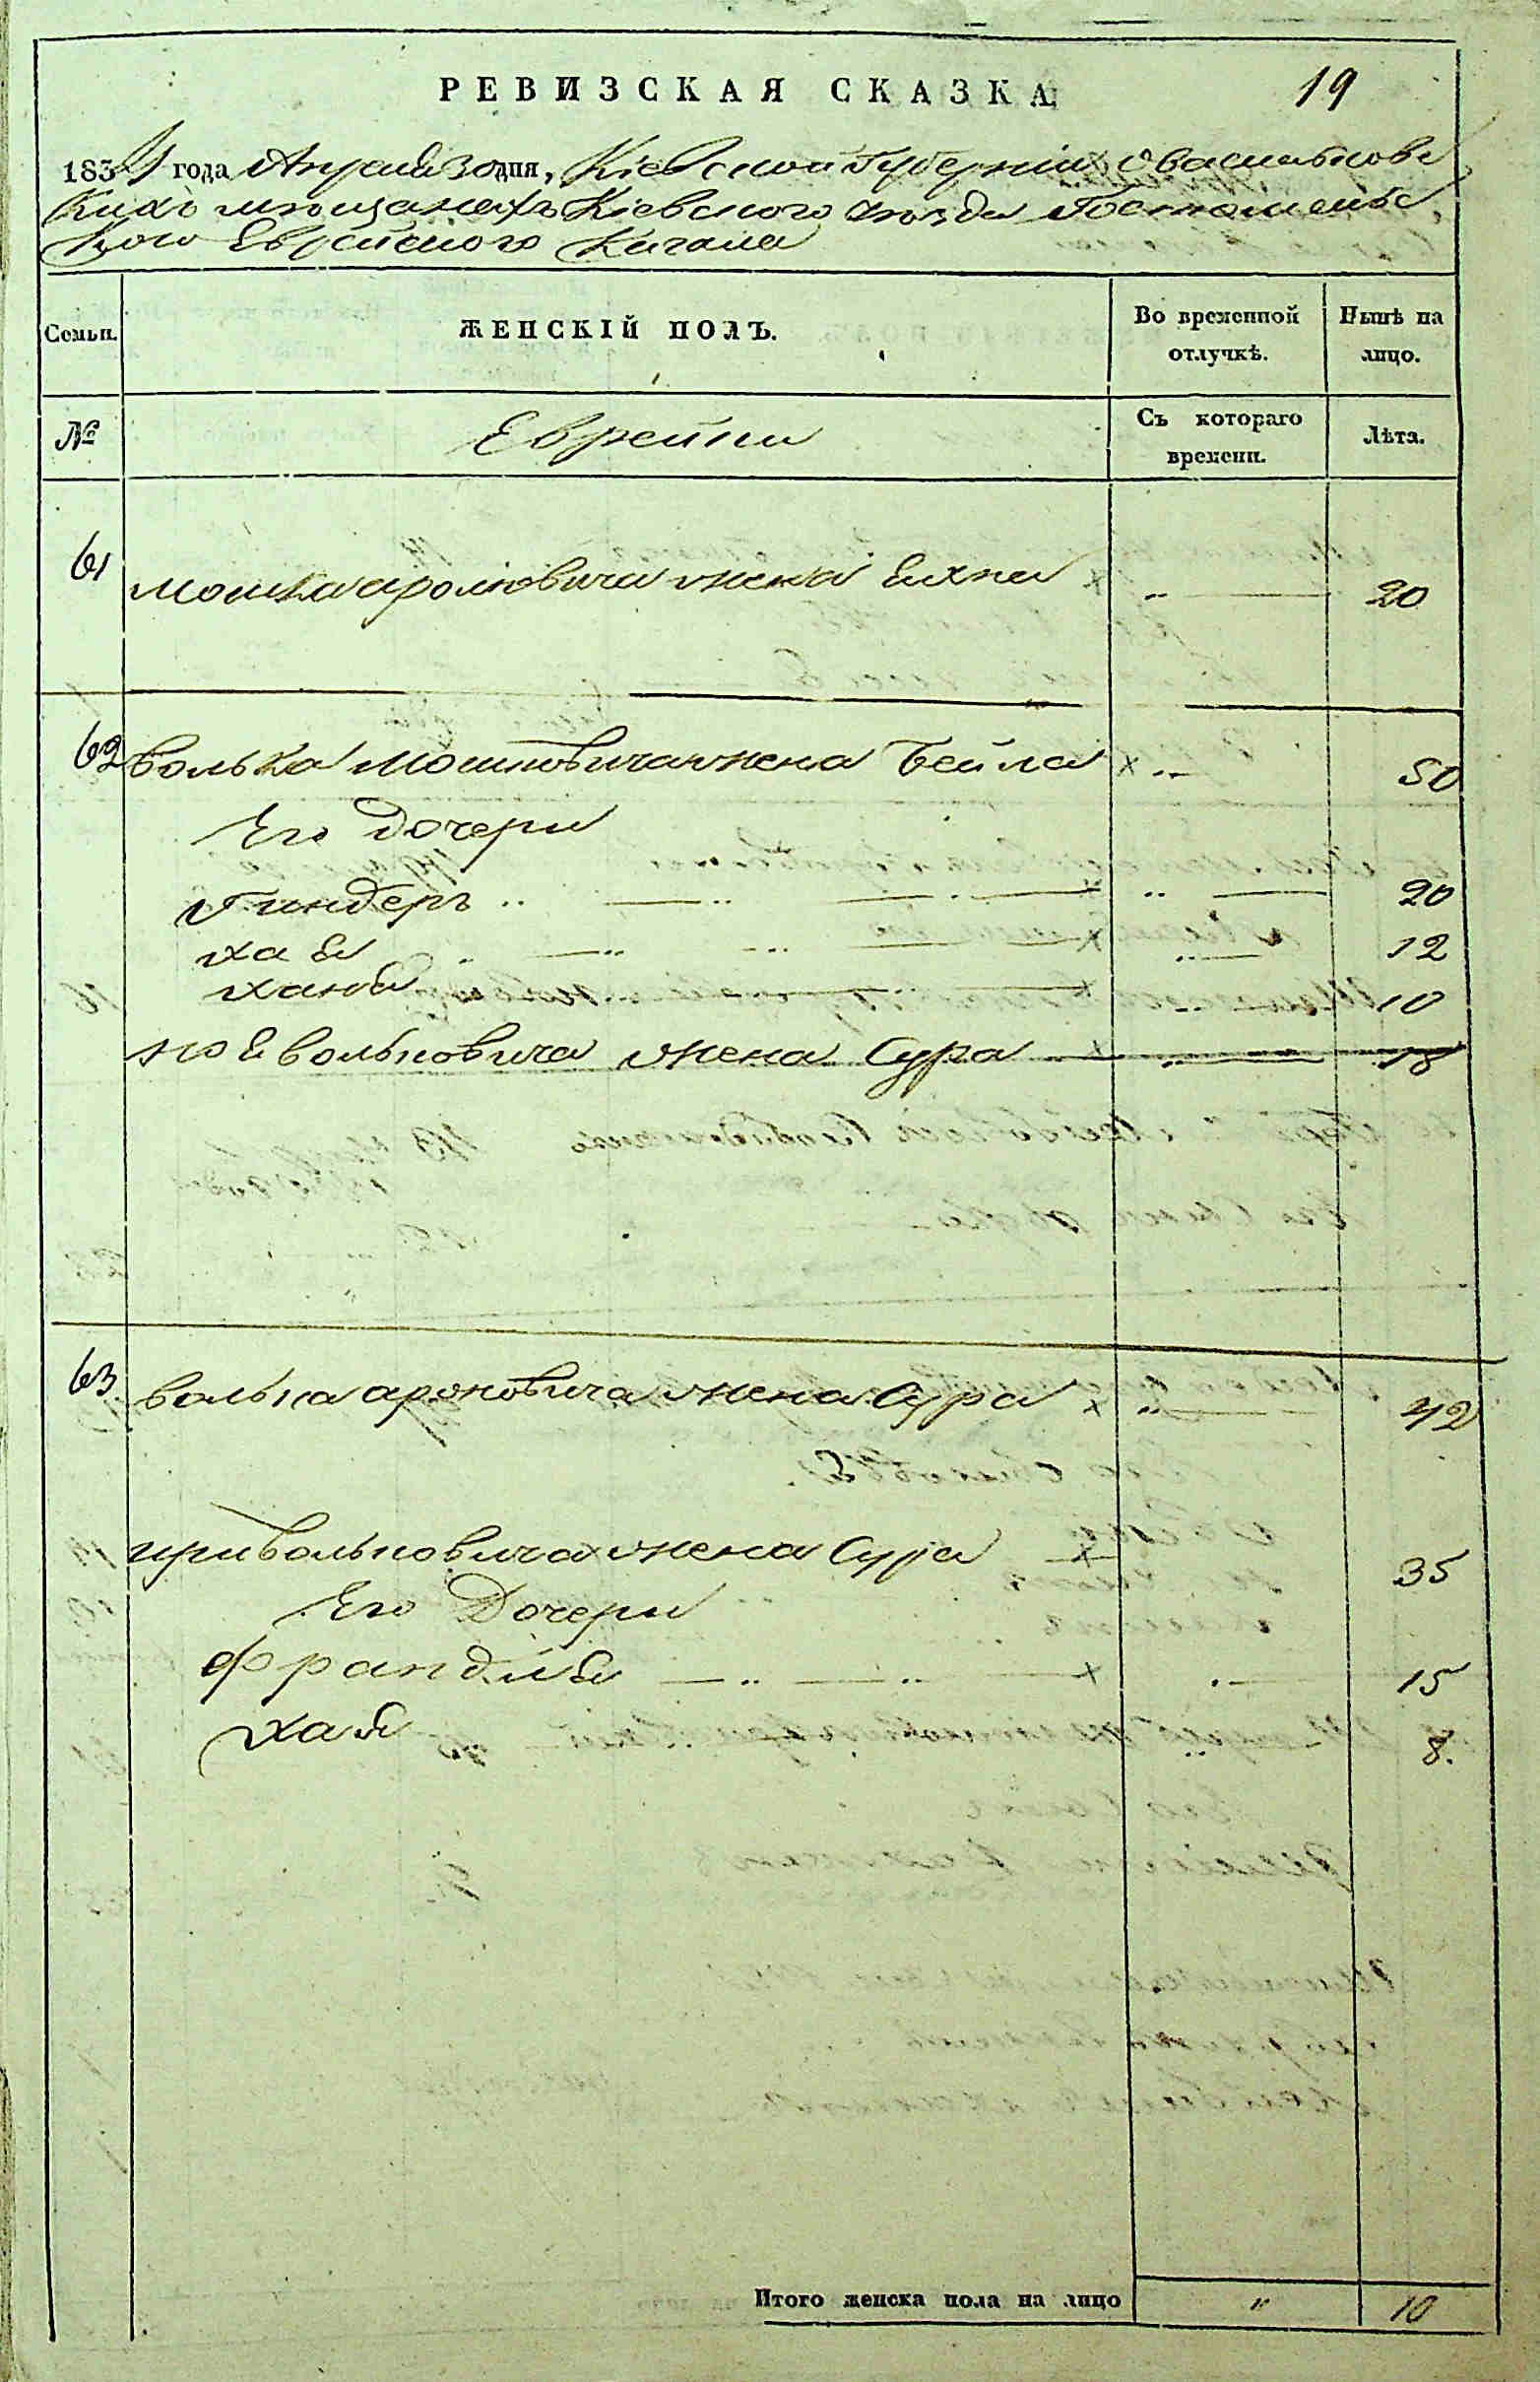 РЕВИЗСКАЯ СКАЗКА
19
1834 года Апреля 30 дня, Кіевской Губерніи о васильков
кихъ мѣщанехъ Кіевского уезда Гостомельс
кого Еврейского Кагала
Семьи.
ЖЕНСКІЙ ПОЛЪ.
Во временной отлучкѣ.
Нынѣ на лицо.
№
Еврейки
Съ котораго времени.
Лѣта.
61 Мошка жена 20
62 Волька Мошковича жена Бейла 50
Его Дочери
Гиндеръ 20
хая 12
хана 10
вольковича жена Сура 18
63. Волька ароновича жена Сура 42
вольковича жена Сура 35
Его Дочери
15
хая 8.
Итого женска пола на лицо " 10